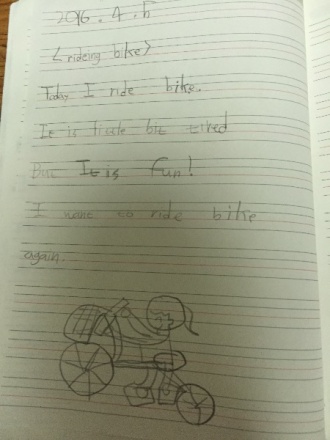 2016. 4. 5
< rideing bike>
Today I ride bike.
It is little bit tired
But It is fun!
I want to ride bike
again.